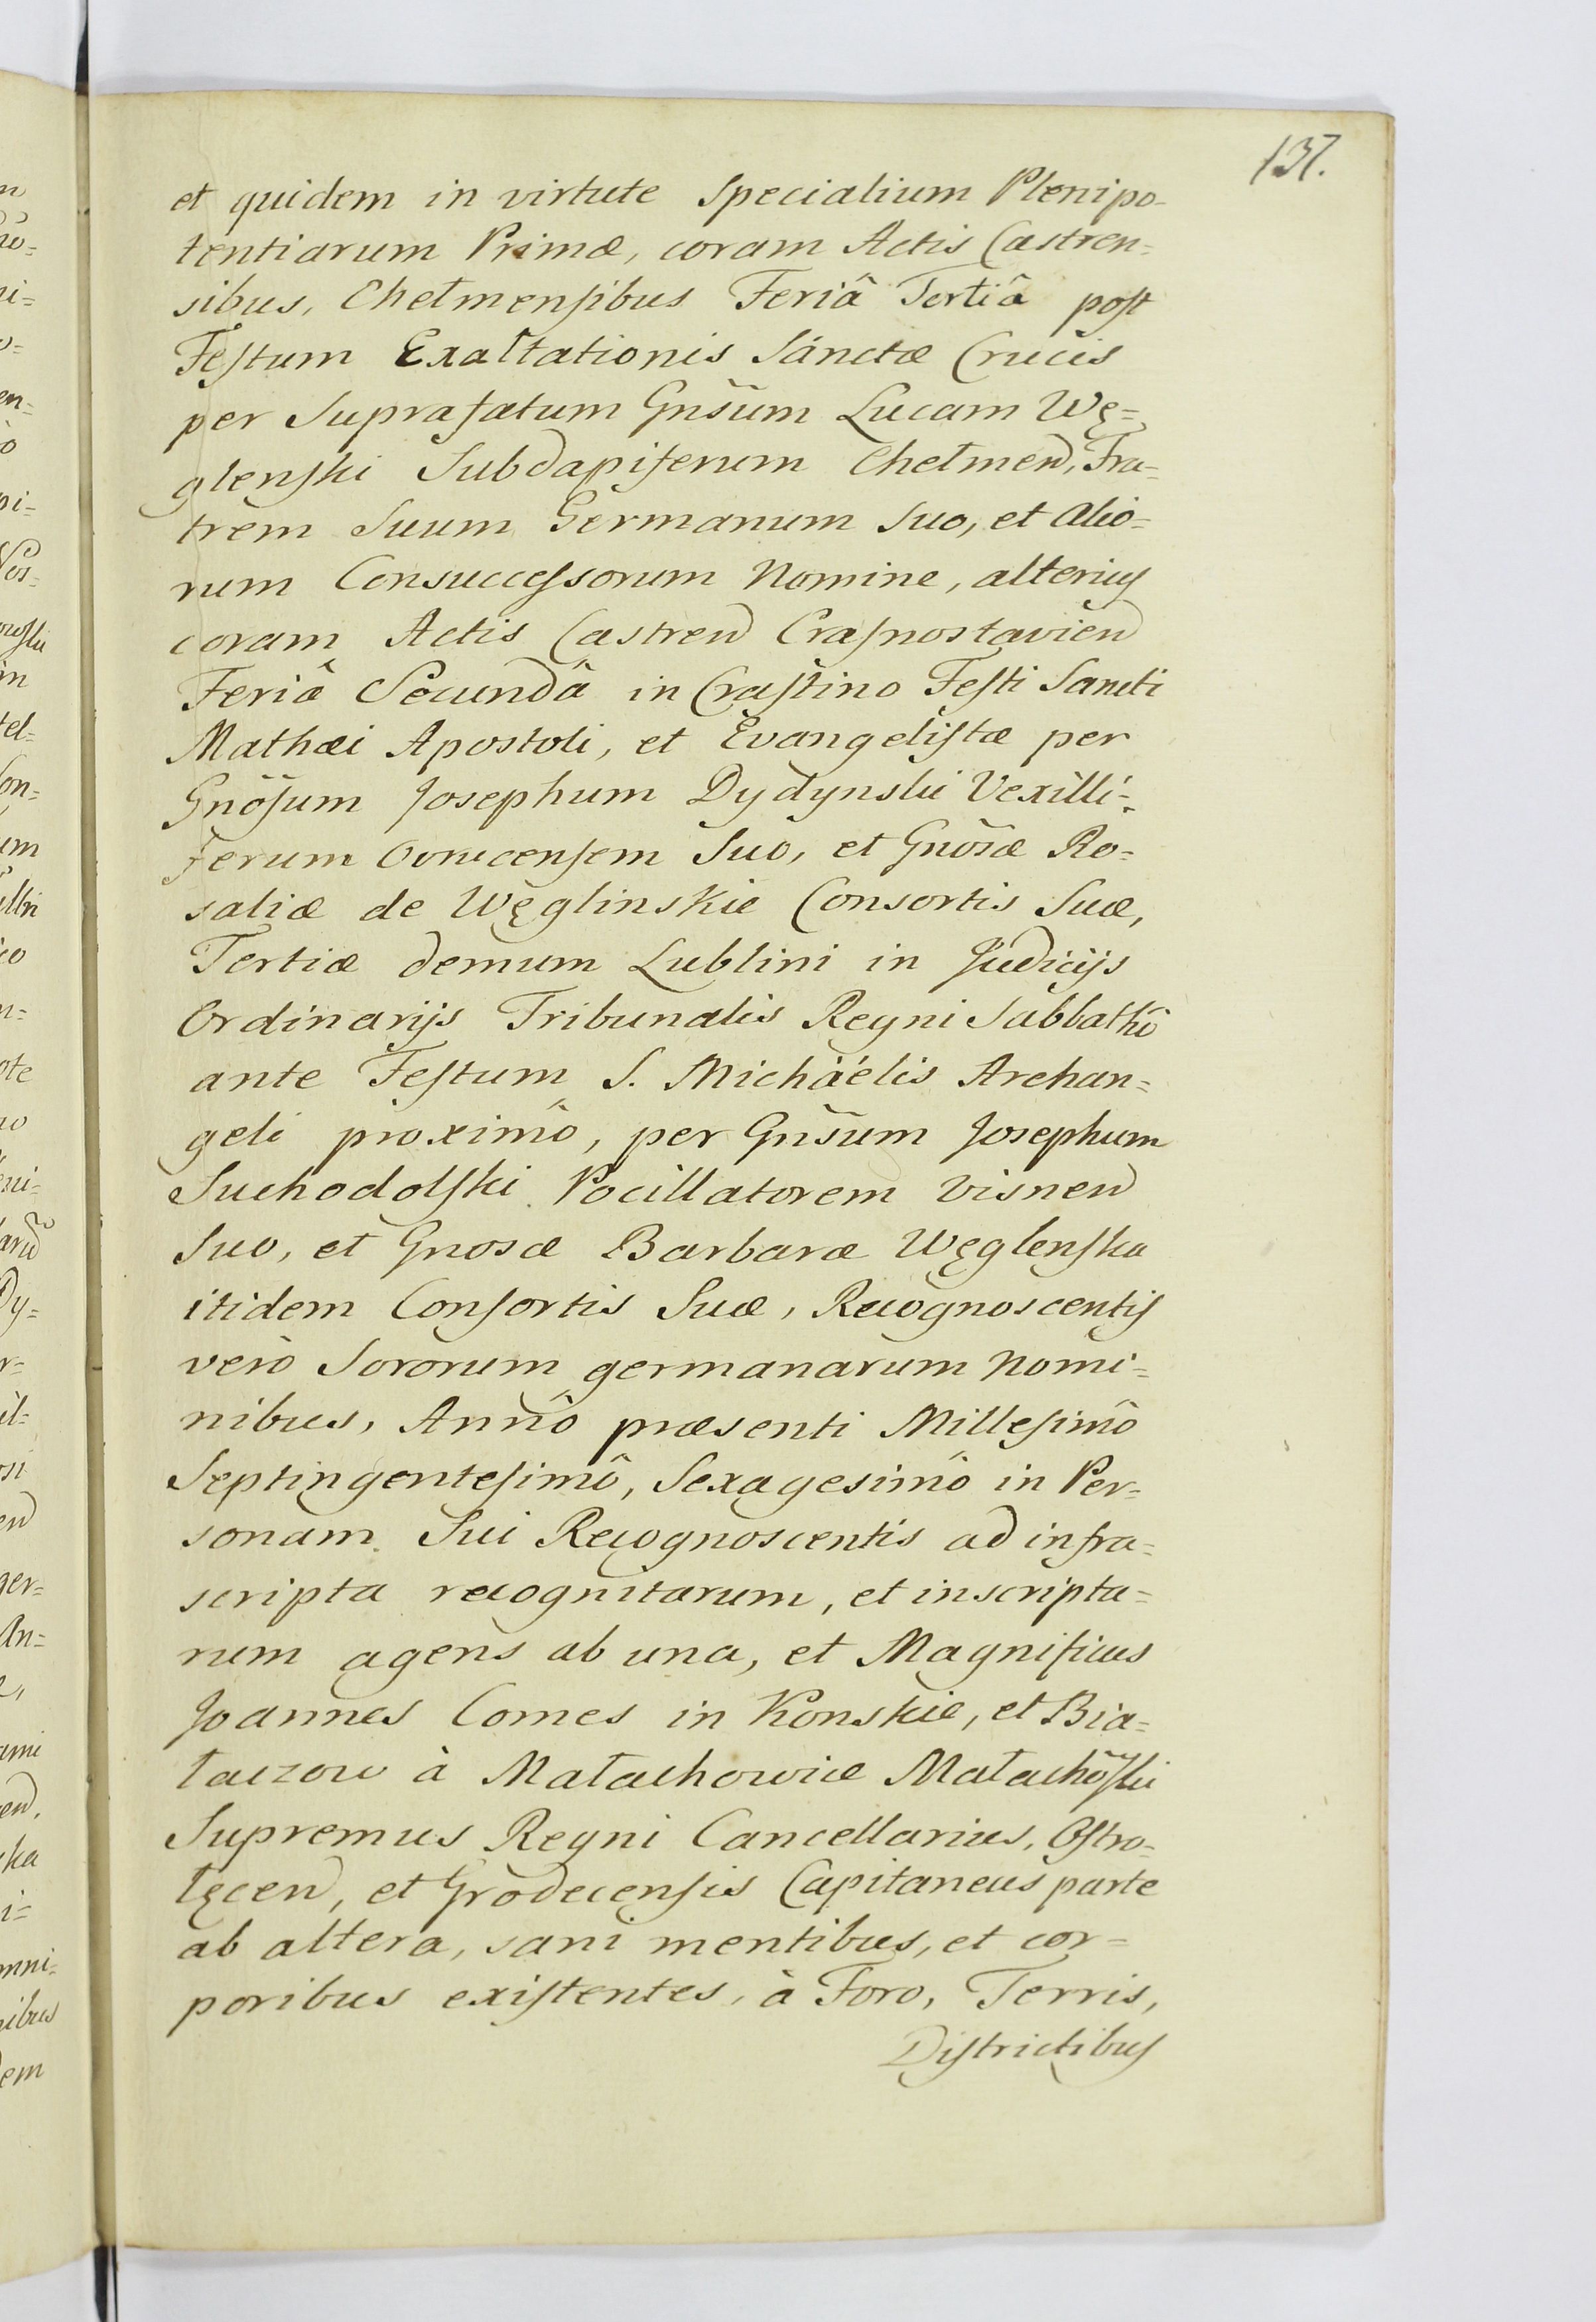 137.
et quidem in virtute Specialium Plenipo-
tentiarum Primæ, coram Actis Castren=
sibus, Chełmensibus Feriâ Tertiâ post
Festum Exaltationis Sanctæ Crucis
per Suprafatum Gnsum Lucam Wę=
glenski Subdapiferum Chełmen, Fra=
trem Suum Germanum Suo, et alio=
rum Consuccessorum Nomine, alterius
coram Actis Castren Crasnostavien
Feriâ Secundâ in Crastino Festi Sancti
Mathæi Apostoli, et Evangelistæ per
Gnosum Josephum Dydynski Vexilli=
ferum Ovrucensem Suo, et Gnosæ Ro=
saliæ de Węglinskie Consortis Suæ,
Tertiæ demum Lublini in Judicijs
Ordinarijs Tribunalis Regni Sabbathô
ante Festum S. Michäélis Archan=
geli proximô, per Gnsum Josephum
Suchodolski Pocillatorem Visnen
Suo, et Gnosæ Barbaræ Węglenska
itidem Consortis Suæ, Recognoscentis
verò Sororum germanarum Nomi=
nibus, Annô præsenti Millesimô
Septingentesimô, Sexagesimô in Per=
sonam Sui Recognoscentis ad infra=
scripta recognitarum, et inscripta=
rum agens ab una, et Magnificus
Joannes Comes in Konskie, et Bia=
łaczow à Małachowice Małachoski
Supremus Regni Cancellarius, Ostro-
łęcen, et Grodecensis Capitaneus parte
ab altera, sani mentibus, et cor=
poribus existentes, à Foro, Terris,
Districtibus